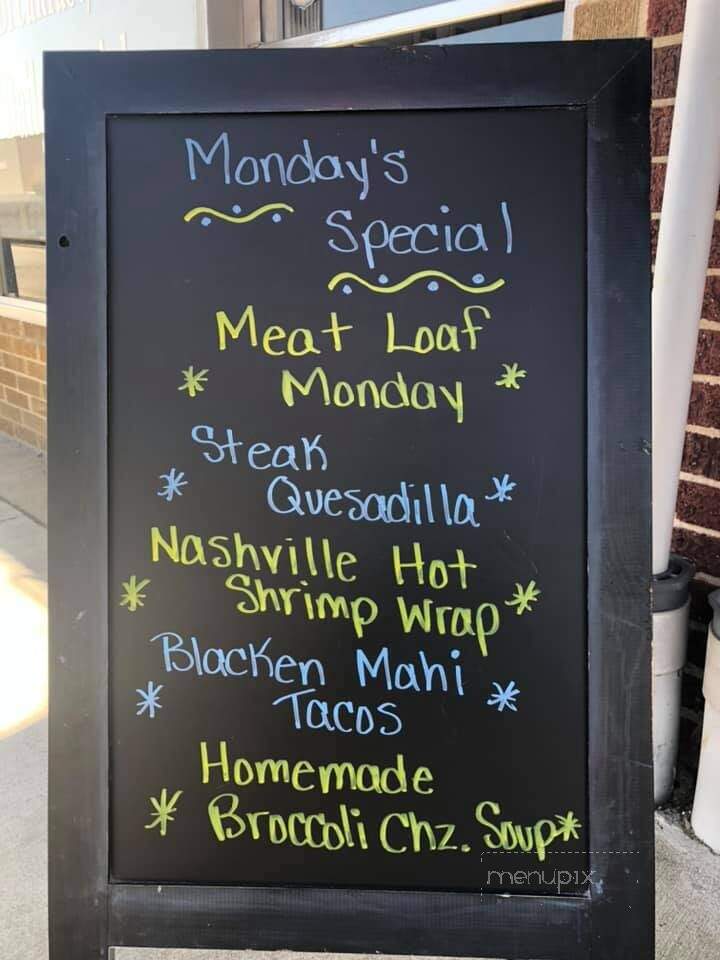 Monday's
Special
Meat Loaf
* Monday *
Steak
* Quesadilla *
Nashville Hot
* Shrimp Wrap *
Blacken Mahi
* Tacos *
Homemade
* Broccoli Chz. Soup *
menupix